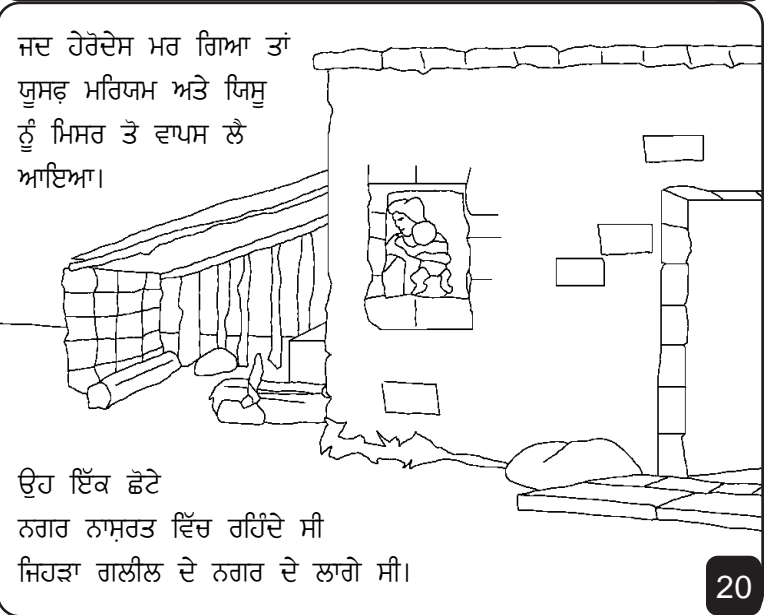 ਜਦ ਹੇਰੋਦੇਸ ਮਰ ਗਿਆ ਤਾਂ
ਯੂਸਫ਼ ਮਰਿਯਮ ਅਤੇ ਯਿਸੂ
ਨੂੰ ਮਿਸਰ ਤੋ ਵਾਪਸ ਲੈ
ਆਇਆ।
ਉਹ ਇੱਕ ਛੋਟੇ
ਨਗਰ ਨਾਸ਼ਰਤ ਵਿੱਚ ਰਹਿੰਦੇ ਸੀ
ਜਿਹੜਾ ਗਲੀਲ ਦੇ ਨਗਰ ਦੇ ਲਾਗੇ ਸੀ।
20